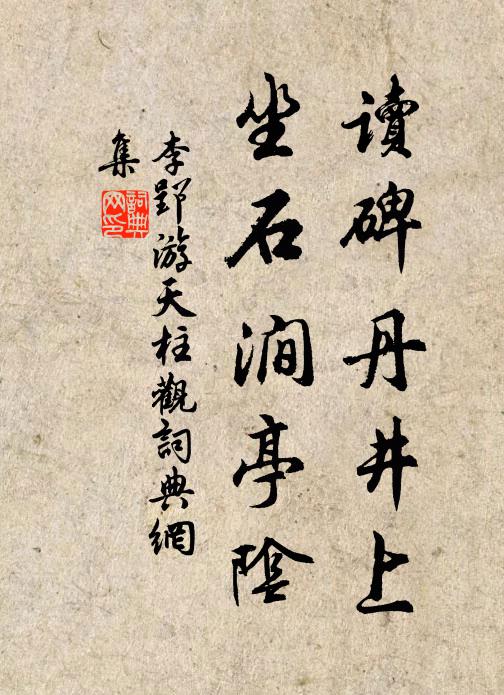 讀碑丹井上
坐石澗亭陰
李郢游天柱觀詞典網
集
詞典
网印